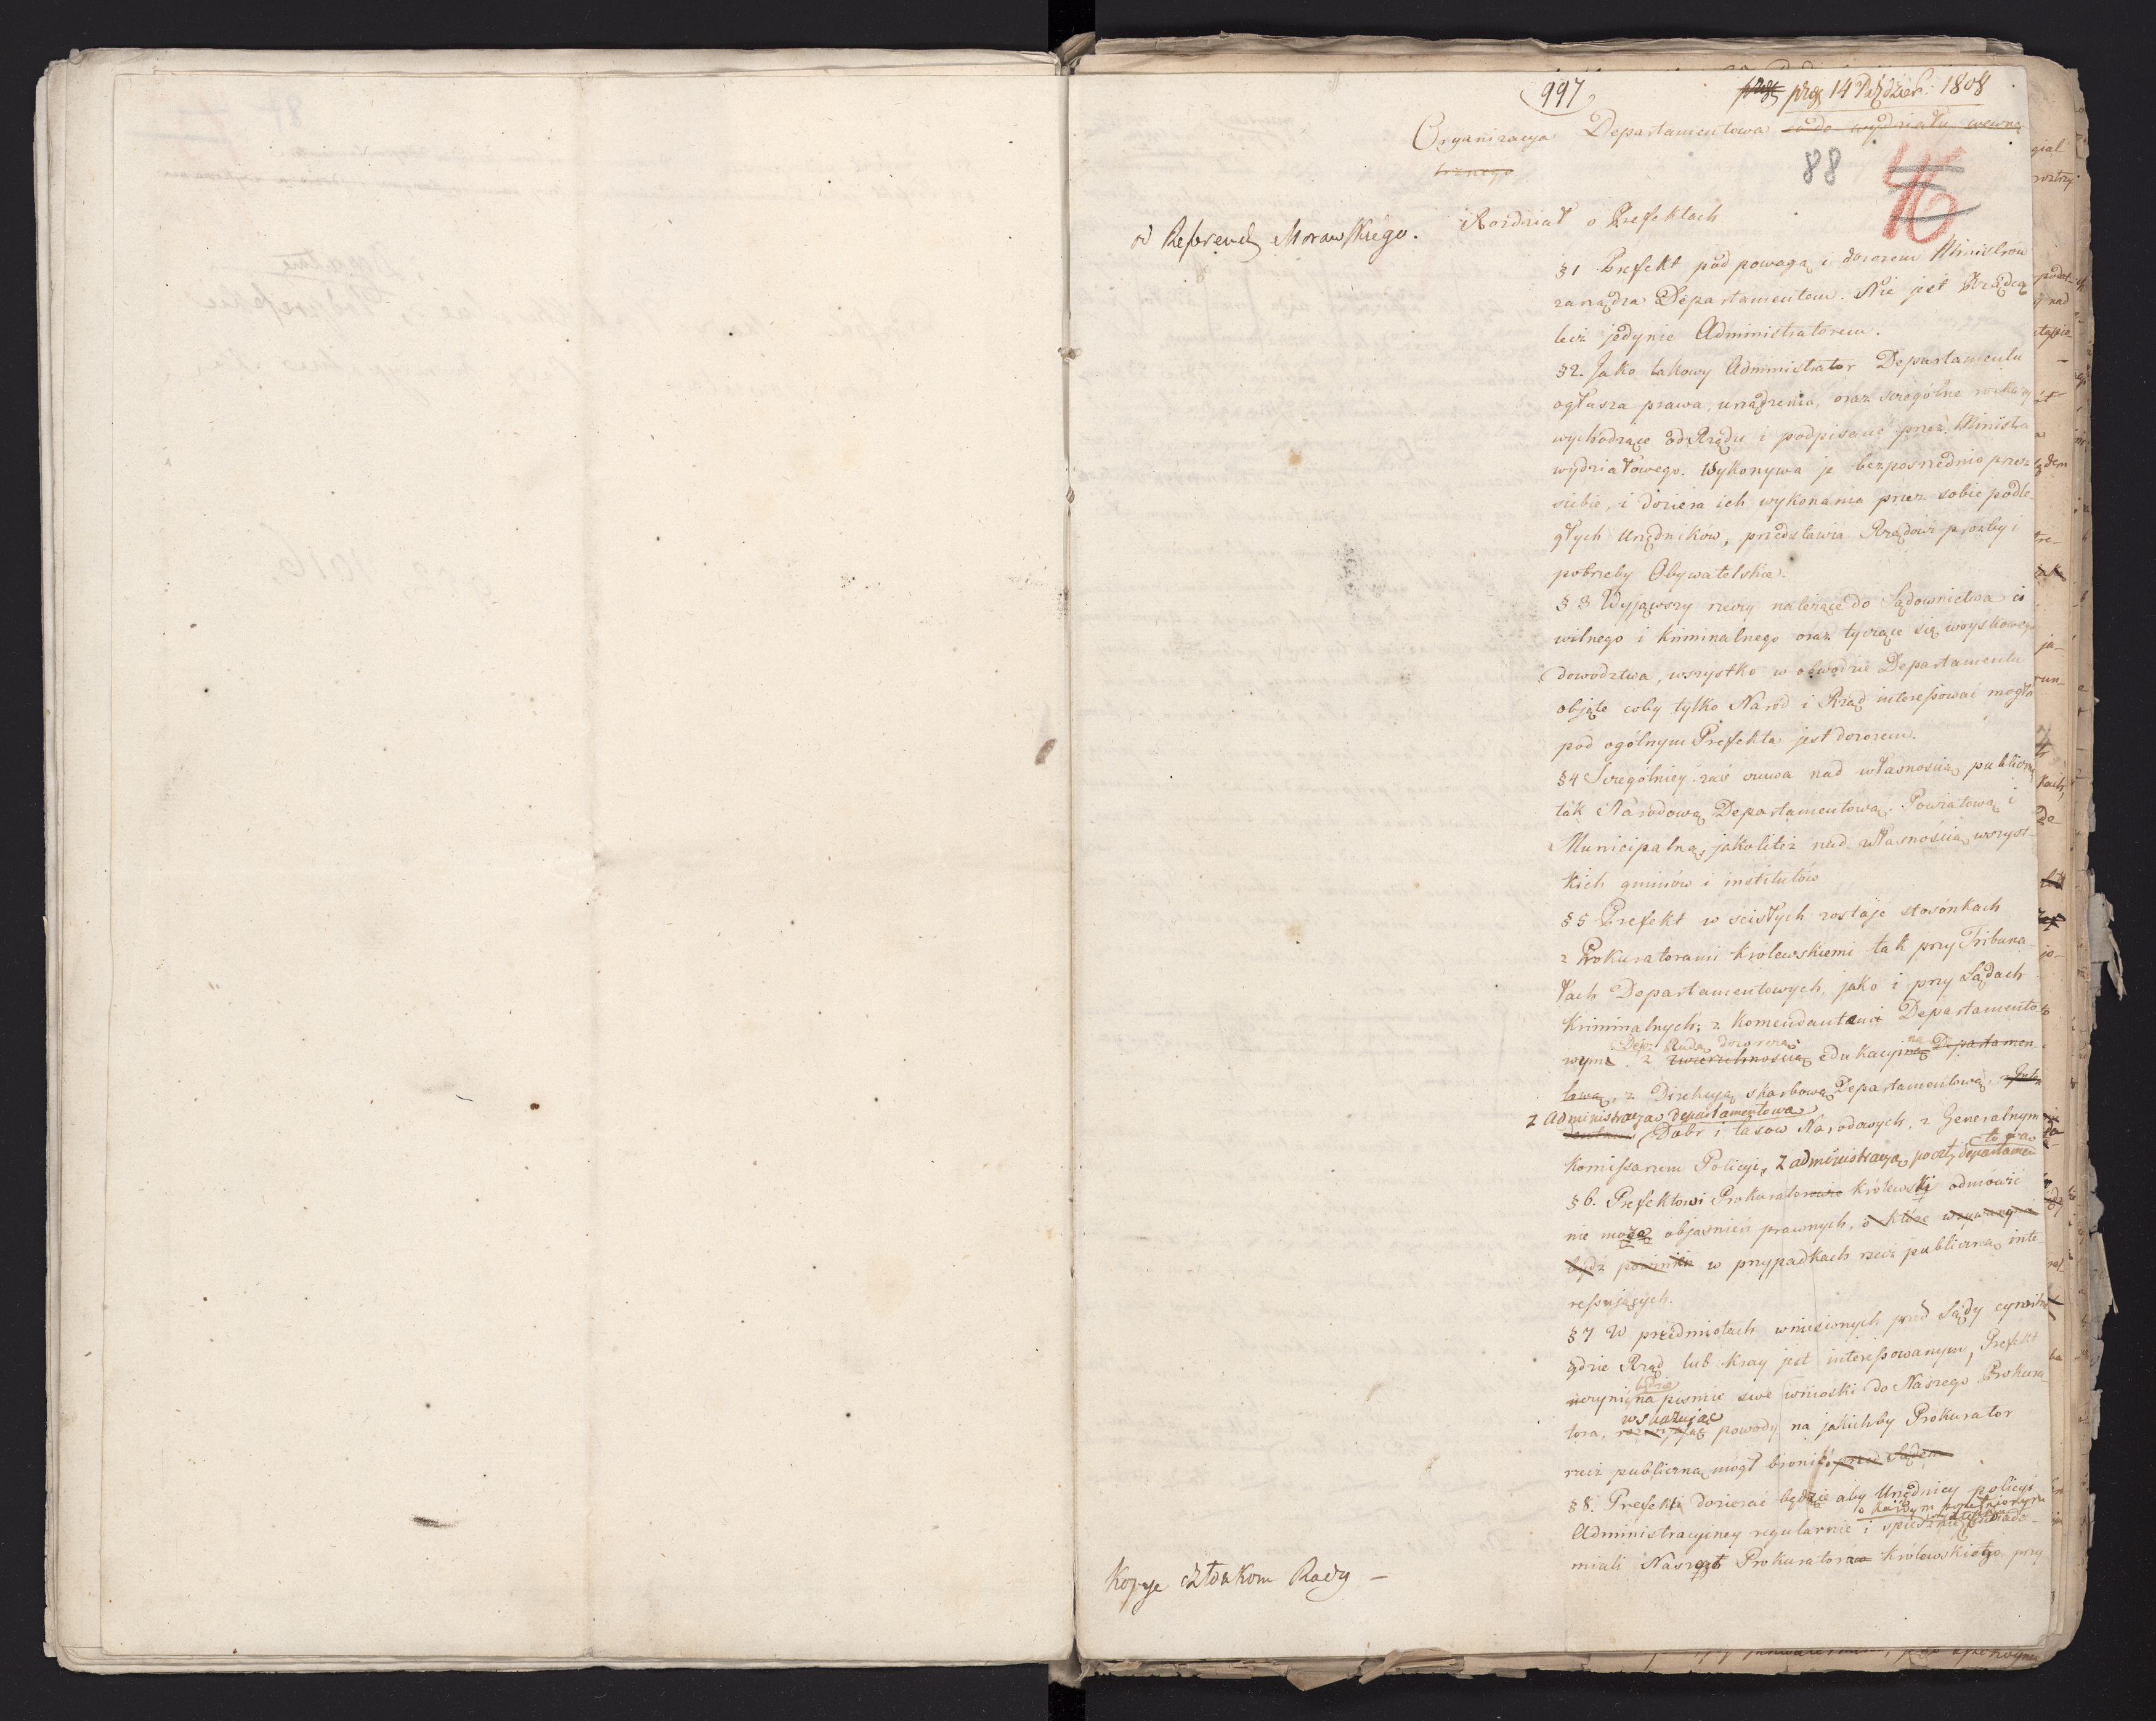 997
prs 14 Paździer: 1808
Organizacya Departamentowa co do wydziału wewnę
trznego
88
46
od Referend Morawskiego.
i Rozdział o Prefektach
§1 Prefekt pod powagą i dozorem Ministrów
zarządza Departamentem. Nie jest Rządcą
lecz jedynie Administratorem.
§2. Jako takowy Administrator Departamentu
ogłasza prawa, urządzenia, oraz szczególne rozkazy
wychodzące od Rządu i podpisane przez Ministra
wydziałowego. Wykonywa je bezpośrednio przez
siebie, i doziera ich wykonania przez sobie podle-
głych Urzędników, przedstawia Rządowi prośby i
potrzeby Obywatelskie.
§3 Wyjąwszy rzeczy należące do Sądownictwa cy
wilnego i kriminalnego oraz tyczące się woyskowego
dowództwa, wszystko w obwodzie Departamentu
objęte coby tylko Naród i Rząd interessować mogło
pod ogólnym Prefekta jest dozorem.
§4 Szczególniey zaś czuwa nad własnością publiczną
tak Narodową Departamentową, Powiatową i
Municipalną, jako też nad własnością wszyst-
kich gminów i institutów
§5 Prefekt w ścisłych zostaje stosónkach
z Prokuratorami królewskiemi tak przy Tribuna-
łach Departamentowych, jako i przy Sądach
Kriminalnych; z Komendantem Departamento-
Dep: Radą dozorczą
wym. z zwierzchnością edukacyiną Departamen
tową, z Direkcyą skarbową Departamentową,
z Administracyą departamentową
Dóbr i lasów Narodowych, z Generalnym
to wą
Komissarzem Policyi, z administracyą poczt, departamen
§6. Prefektowi Prokuratorowie królewski odmówić
nie może objaśnień prawnych, o które wzywanymi
bydź powinien w przypadkach rzecz publiczną inte-
ressujących.
§7 W przedmiotach wniesionych przed Sądy cywilne
gdzie Rząd lub kray jest interessowanym, Prefekt
uczyni na piśmie swe wnioski do Naszego Prokura-
wskazując
tora, rozwijając powody na jakichby Prokurator
rzecz publiczną mógł bronić przed Sądem
§8. Prefekt dozierać będzie aby Urzędnicy policyi
o każdym popełnionym
Administracyiney regularnie i spiesznie uwiado-
miali Naszego Prokuratora królewskiego przy
Kopye członkom Rady –